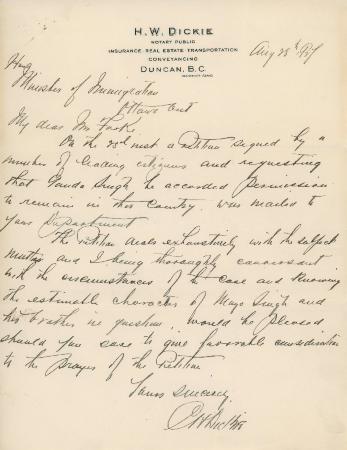 H. W. DICKIE
NOTARY PUBLIC
INSURANCE - REAL ESTATE - TRANSPORTATION
CONVEYANCING
DUNCAN, B.C.
Aug 28th
Hon
Minister of Immigration
Ottawa Ont
My dear Mr
On the inst a petition signed by a
number of leading citizens and requesting
that Ganda Singh be accorded permission
to remain in this country was mailed to
your Department
The petition deals exhaustively with the subject
matter and I being thoroughly conversant
with the circumstances of the case and knowing
the estimable character of Mayo Singh and
his brother in question, would be pleased
should you care to give favorable consideration
to the prayer of the Petition
Yours sincerely